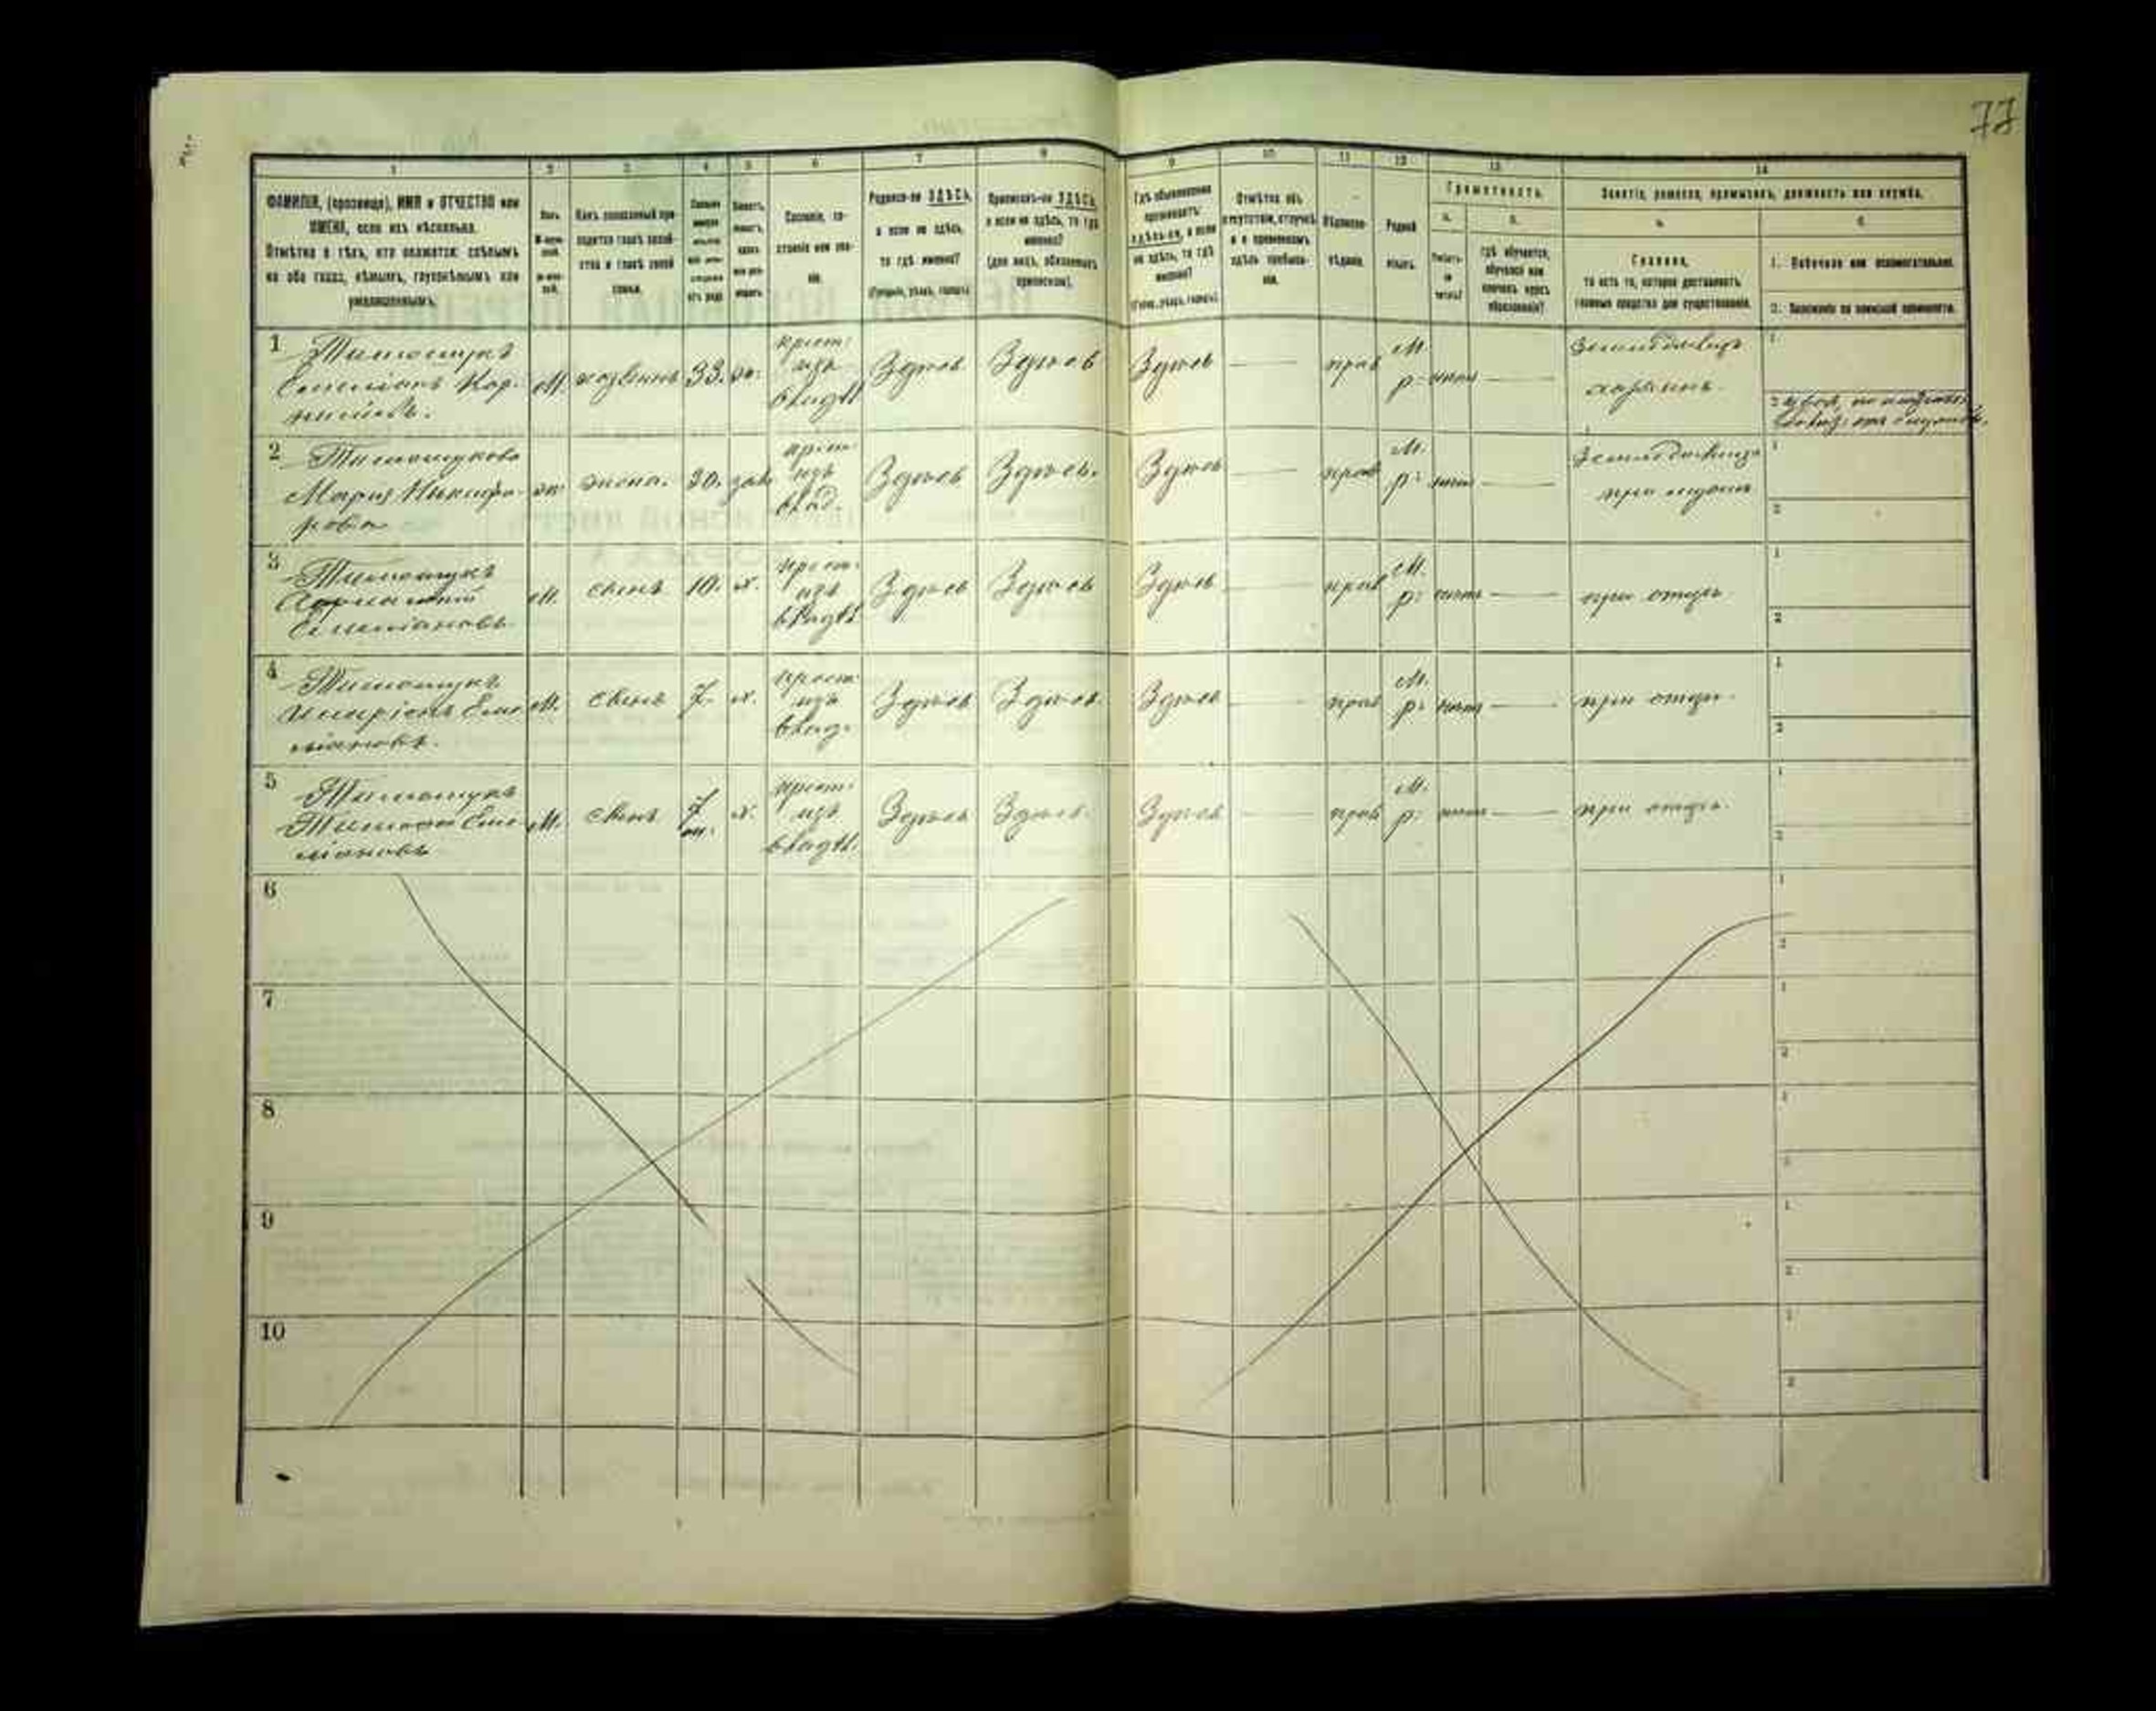 77
1 2 3 4 5 6 7 8 9 10 11 12 13 14
ФАМИЛІЯ, (прозвище), ИМЯ и ОТЧЕСТВО или
ИМЕНА, если ихъ нѣсколько.
Отмѣтка о тѣхъ, кто окажется: слѣпымъ
на оба глаза, нѣмымъ, глухонѣмымъ или
умалишеннымъ.
Полъ.
Какъ записанный при-
ходится главѣ хозяй-
ства и главѣ своей
семьи.
Сословіе, со-
стояніе или зва-
ніе.
Родился-ли ЗДѢСЬ,
а если не здѣсь,
то гдѣ именно?
(Губернія, уѣздъ, городъ)
Приписанъ-ли ЗДѢСЬ,
а если не здѣсь, то гдѣ
именно?
(для лицъ, обязанныхъ
припискою).
Гдѣ обыкновенно
проживаетъ:
здѣсь-ли, а если
не здѣсь, то гдѣ
именно?
(Губ., уѣздъ, городъ)
Отмѣтка объ
отсутствіи, отлучкѣ
и о временномъ
здѣсь пребыва-
ніи.
Вѣроиспо-
вѣданіе.
Родной
языкъ.
Грамотность.
а. б.
Умѣетъ-
ли
читать?
гдѣ обучается,
обучался или
кончилъ курсъ
образованія?
Занятіе, ремесло, промыселъ, должность или служба.
а. б.
Главное,
то есть то, которое доставляетъ
главныя средства для существованія.
1. Побочное или вспомогательное.
2. Положеніе по воинской повинности.
1 Тимощукъ
Емеліанъ Кор-
ниліевъ.
М. хозяинъ 33. жен.
крест.
изъ
владѣл.
Здѣсь Здѣсь Здѣсь прав
М.
р.
нѣтъ
Земледѣлецъ
хозяинъ.
1
2
2 Тимощукова
Марія Никифо-
рова
жен жена. 30. зам
крест
изъ
влад.
Здѣсь Здѣсь. Здѣсь прав
М.
р.
нѣтъ
Земледѣлица
при мужѣ
1
2
3 Тимощукъ
Емеліановъ
М. сынъ 10. х.
крест.
изъ
владѣл.
Здѣсь Здѣсь Здѣсь прав
М.
р.
нѣтъ
при отцѣ.
1
2
4 Тимощукъ
Иларіонъ Еме-
ліановъ.
М. сынъ 7. х.
крест
изъ
влад.
Здѣсь Здѣсь. Здѣсь прав
М.
р.
нѣтъ
при отцѣ.
1
2
5 Тимощукъ
Тимофей Еме-
ліановъ
М. сынъ 7
м.
х.
крест.
изъ
владѣл.
Здѣсь Здѣсь. Здѣсь прав
М.
р.
нѣтъ
при отцѣ.
1
2
6
1
2
7
1
2
8
1
2
9
1
2
10
1
2